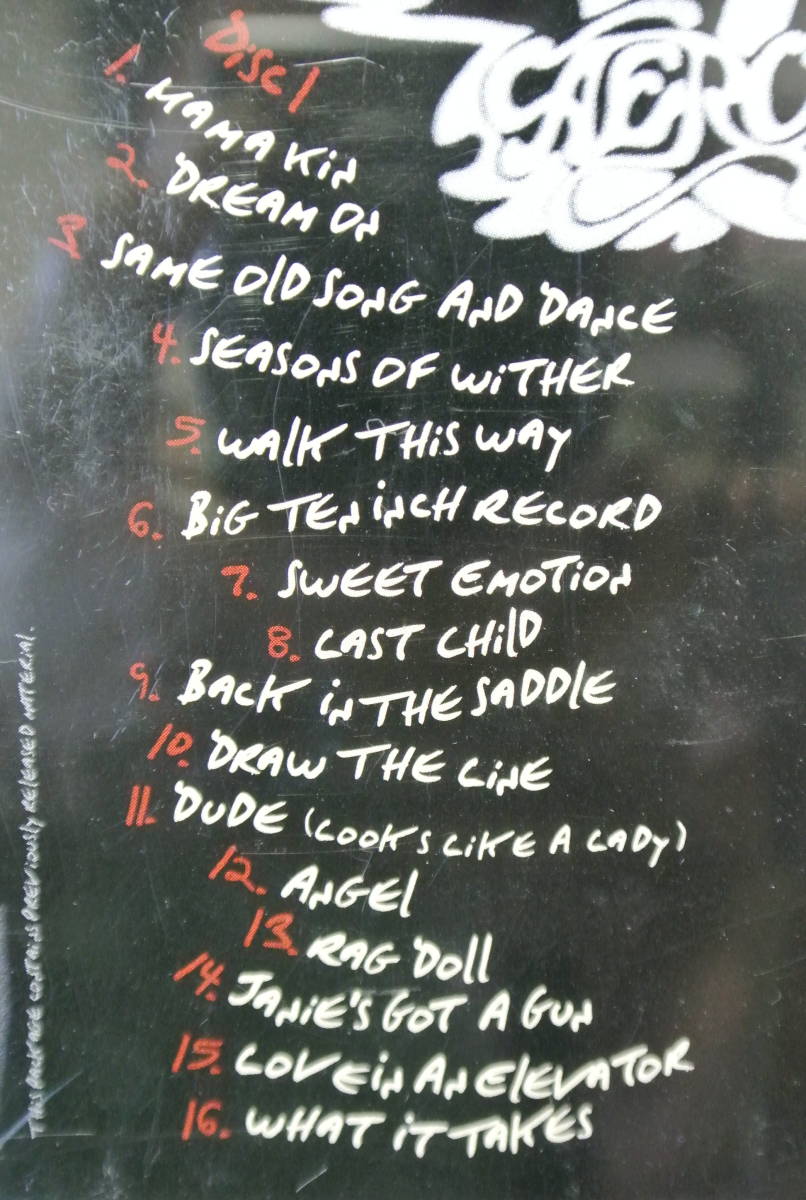 Disc 1
1. MAMA KiN
2. DREAM ON
3. SAME OlD SONG AND DANCE
4. SEASONS OF WiTHER
5. WAlK THiS WAY
6. BiG TEN iNCH RECORD
7. SWEET EMOTiON
8. LAST CHilD
9. BACK iN THE SADDlE
10. DRAW THE LiNE
11. DUDE (LOOKS LiKE A LADY)
12. ANGEl
13. RAG Doll
14. JANiE'S GOT A GUN
15. LOVE iN AN ElEVATOR
16. WHAT iT TAKES
THiS PACKAGE CONTAiNS PREViOUSlY RElEASED MATERiAl.
AERO